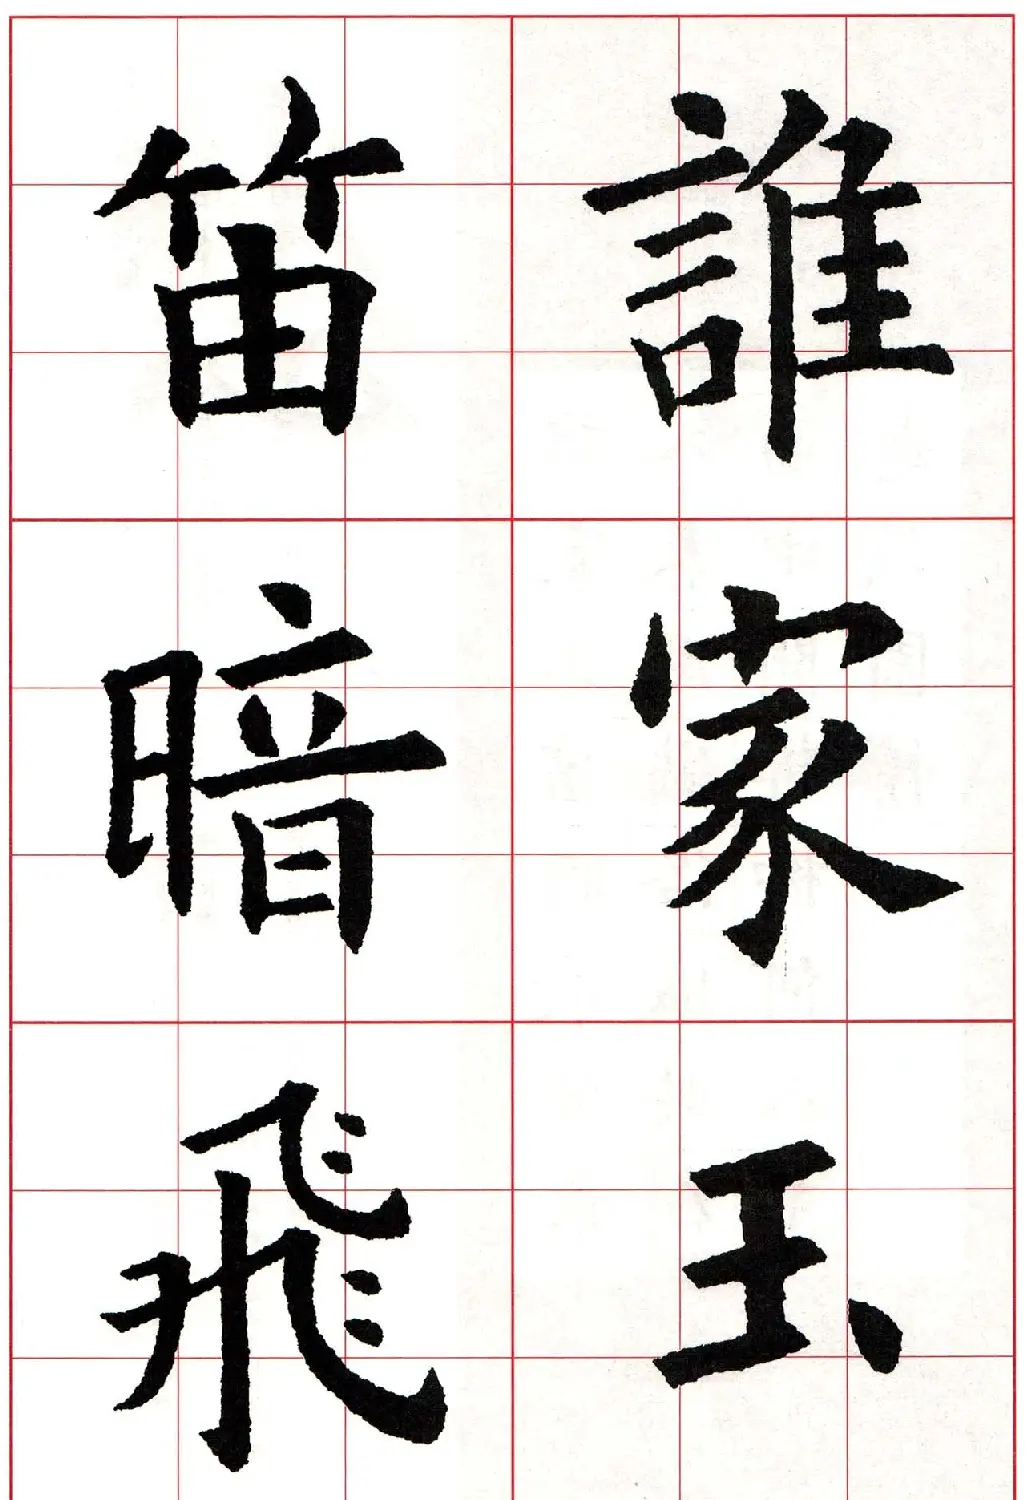 誰家玉
笛暗飛